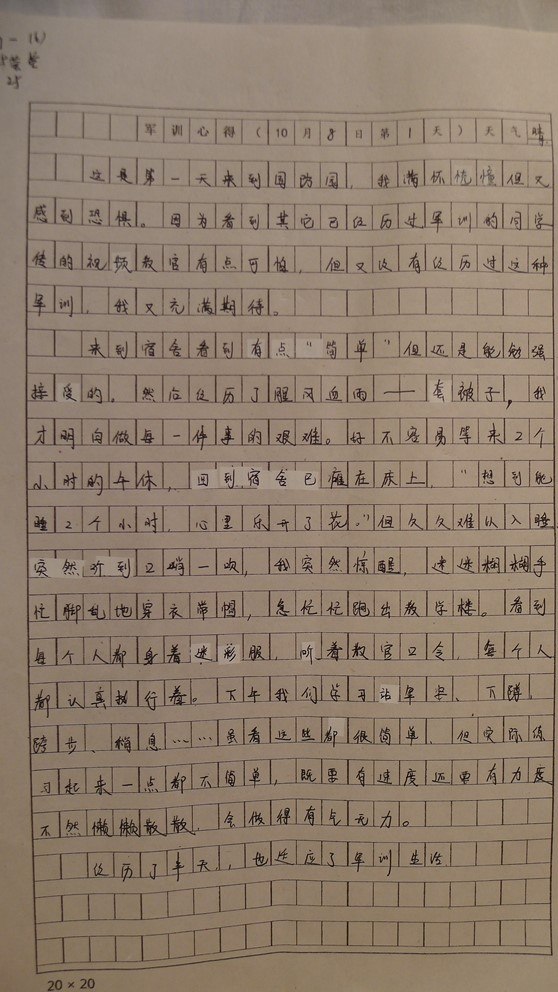 一 (6)
25
军训心得(10月8日第1天)天气晴
这是第一天来到国防园,我满怀忧憧但又
感到恐惧。因为看到其它已经历过军训的同学
传的视频教官有点可怕,但又没有经历过这种
军训,我又充满期待。
来到宿舍看到有点“简单”但还是能勉强
接受的。然后经历了腥风血雨——套被子,我
才明白做每一件事的艰难。好不容易等来2个
小时的午休,回到宿舍已瘫在床上,“想到能
睡2个小时,心里乐开了花。”但久久难以入睡
突然听到口哨一吹,我突然惊醒,迷迷糊糊手
忙脚乱地穿衣带帽,急忙忙跑出教学楼。看到
每个人都身着迷彩服,听着教官口令,每个人
都认真执行着。下午我们学习站军姿、下蹲、
跨步、稍息……虽看这些都很简单,但实际练
习起来一点都不简单,既要有速度还要有力度
不然懒懒散散,会做得有气无力。
经历了半天,也适应了军训生活
20×20